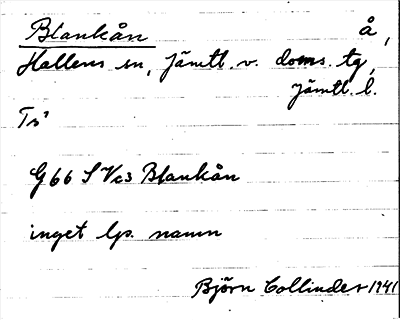 Blankån å,
Hallens sn, Jämtl. v. doms. tg,
Jämtl. l.
Ts'
G66 S Vc3 Blankån
inget lps. namn
Björn Collinder 1941